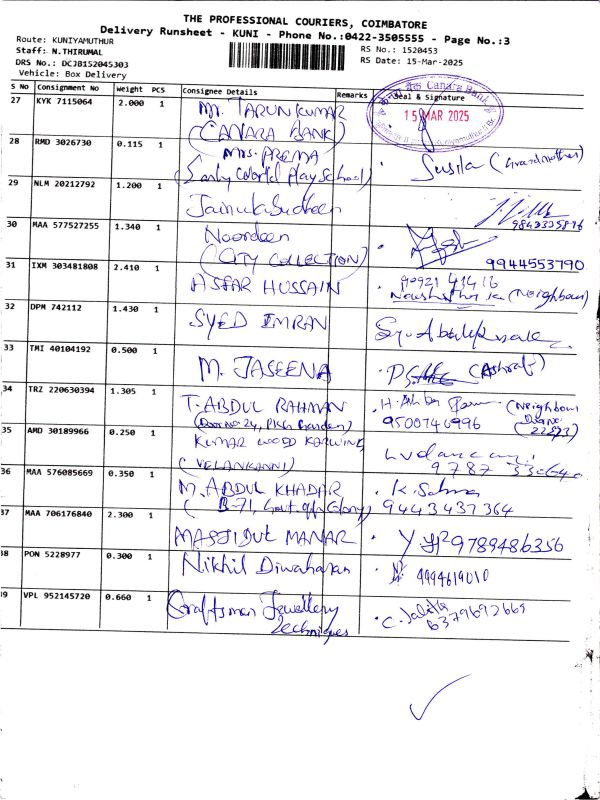 THE PROFESSIONAL COURIERS, COIMBATORE
Delivery Runsheet - KUNI - Phone No.:0422-3505555 - Page No.:3
Route: KUNIYAMUTHUR
Staff: N.THIRUMAL
RS No.: 1520453
DRS No.: DCJB152045303
RS Date: 15-Mar-2025
Vehicle: Box Delivery
S No Consignment No Weight PCS Consignee Details Remarks Seal & Signature
27 KYK 7115064 2.000 1 Mr. TARUN KUMAR
(CANARA BANK)
Canara Bank
15 MAR 2025
28 RMD 3026730 0.115 1 Mrs. PREMA
Play School) Susila (Grandmother)
29 NLM 20212792 1.200 1
30 MAA 577527255 1.340 1 Noordeen
(CITY COLLECTION) 9944553790
31 IXM 303481808 2.410 1 ASFAR HUSSAIN
(Neighbour)
32 DPM 742112 1.430 1 SYED IMRAN
33 TMI 40104192 0.500 1 M. JASEENA (Ashraf)
34 TRZ 220630394 1.305 1 T. ABDUL RAHMAN
(Door No 24, PKG Garden) (Neighbour
9500746996
35 AMD 30189966 0.250 1 KUMAR WOOD KARWING
(VELANKANNI)
36 MAA 576085669 0.350 1 M. ABDUL KHADAR K. Salma
(B-71, Govt. Colony) 9443437364
37 MAA 706176840 2.300 1 MASJIDUL MANAR 9789486356
38 PON 5228977 0.300 1 Nikhil Diwaharan 9994619010
39 VPL 952145720 0.660 1 Craftsman Jewellery
Techniques
C. 6379692669